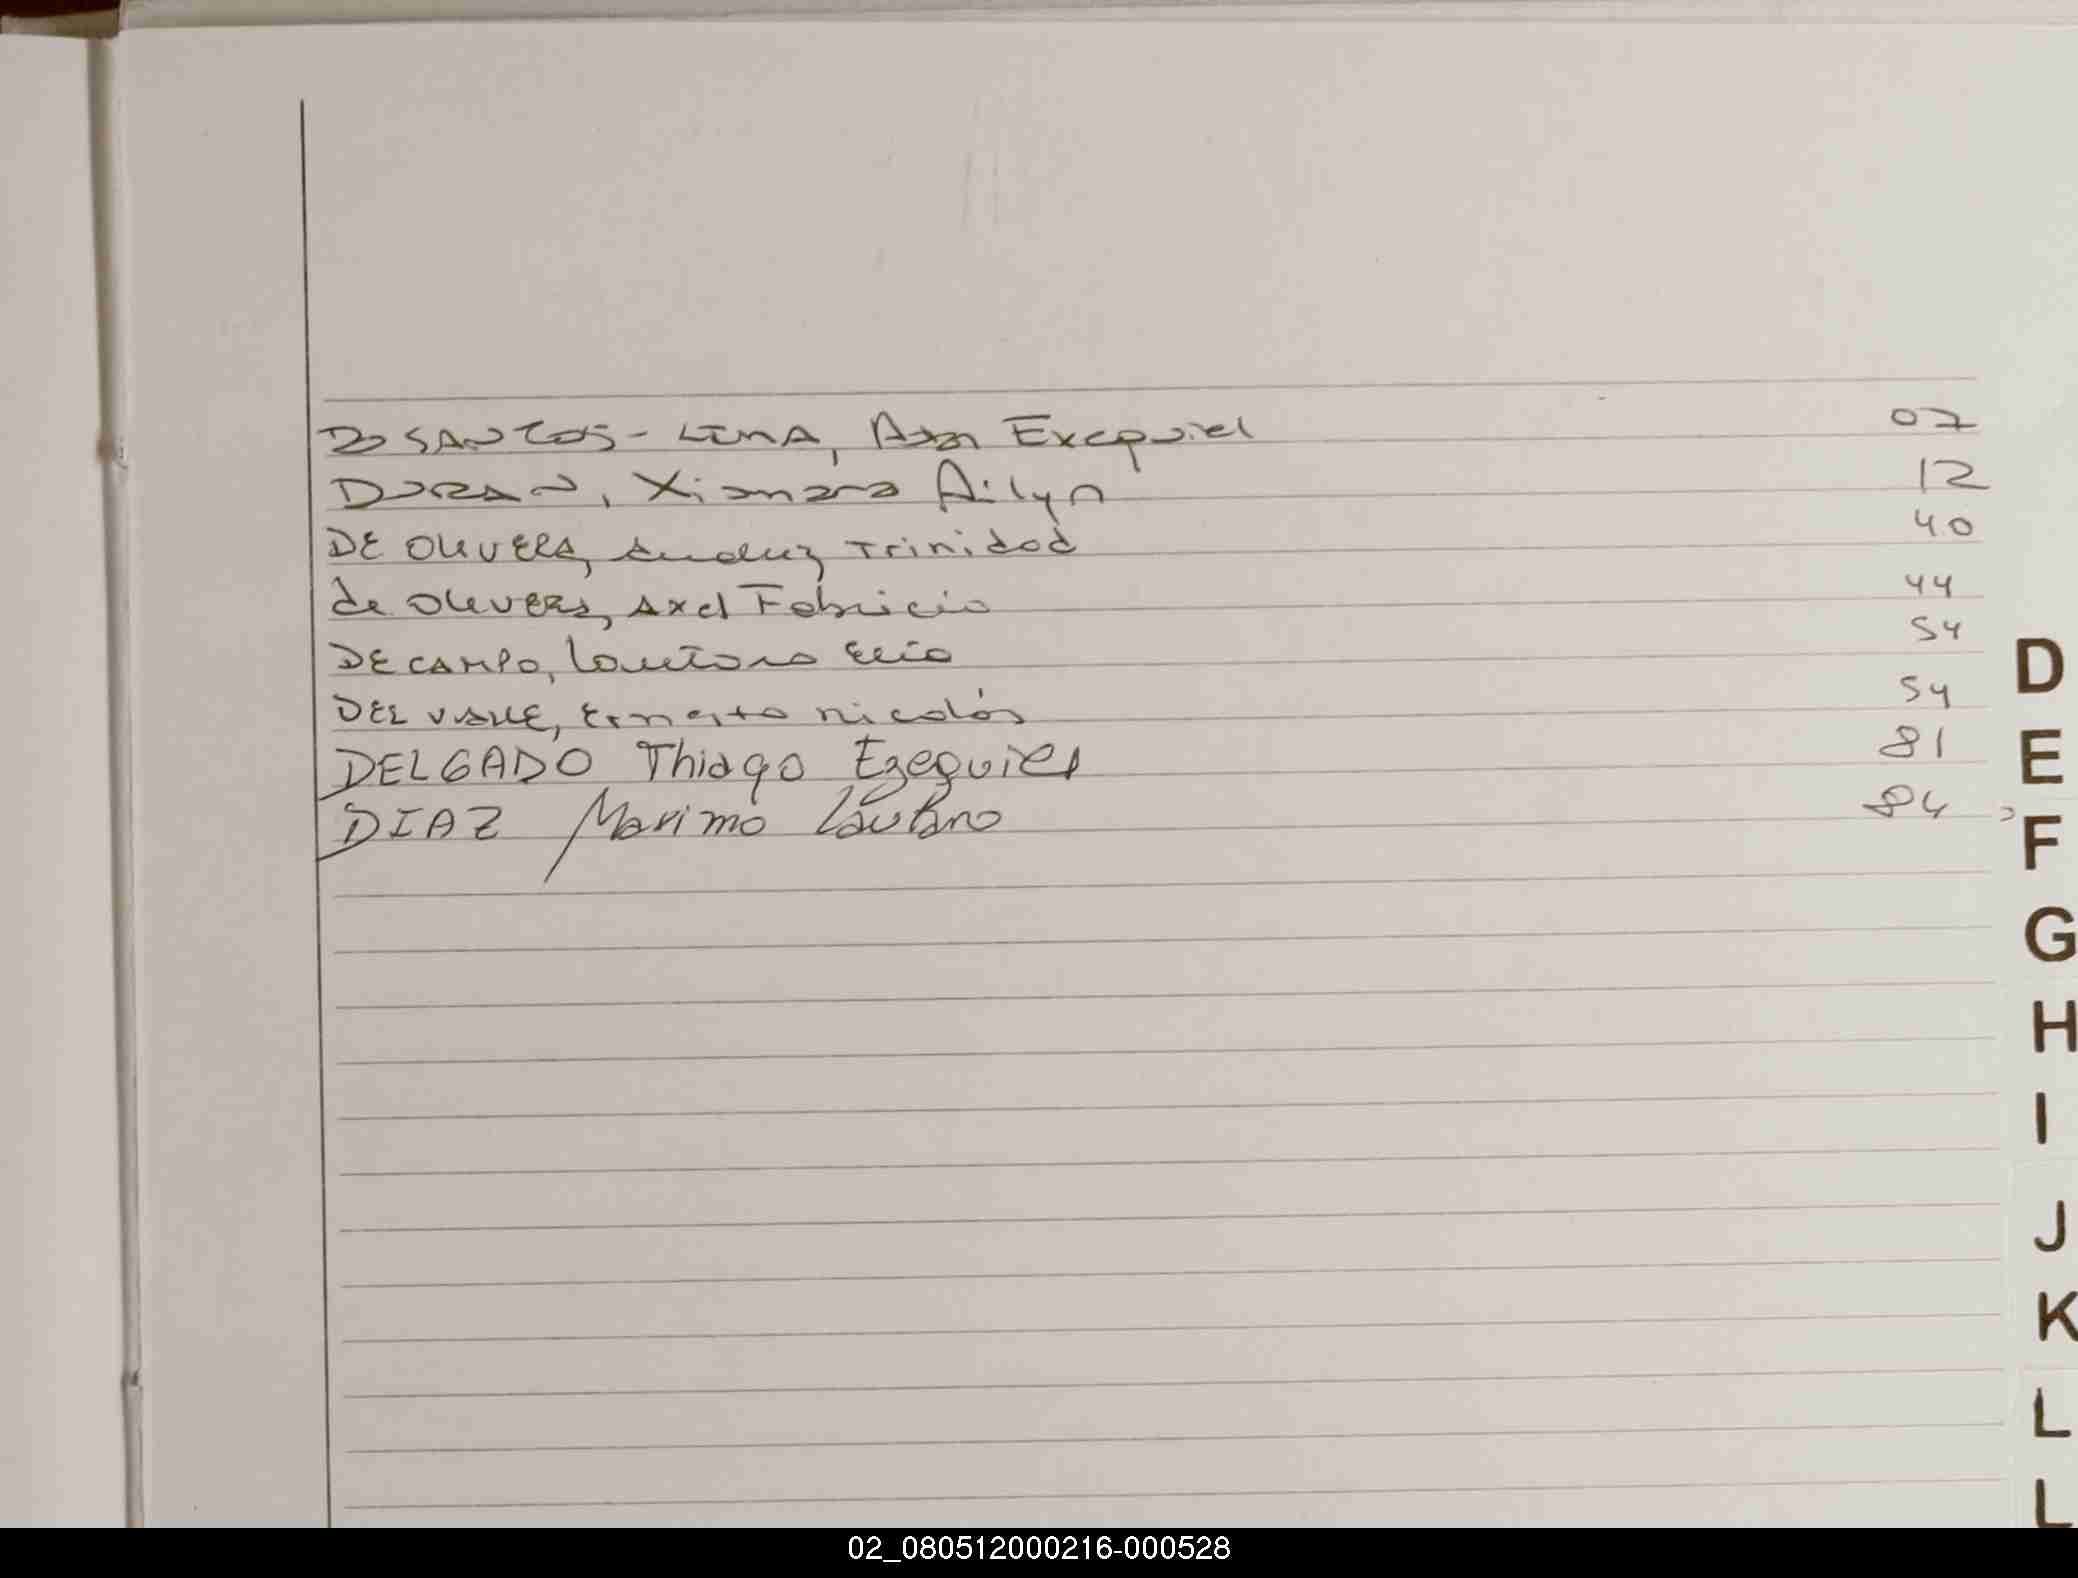 DO SANTOS - LIMA, Exequiel 07
DURAN, Xiomara Ailyn 12
DE OLIVERA, Trinidad 40
de OLIVERA, Axel Fabricio 44
DE CAMPO, Lautaro 54
DEL VALLE, Ernesto nicolás 54
DELGADO Thiago Ezequiel 81
DIAZ Maximo Lautaro 84
D
E
F
G
H
I
J
K
L
L
02_080512000216-000528